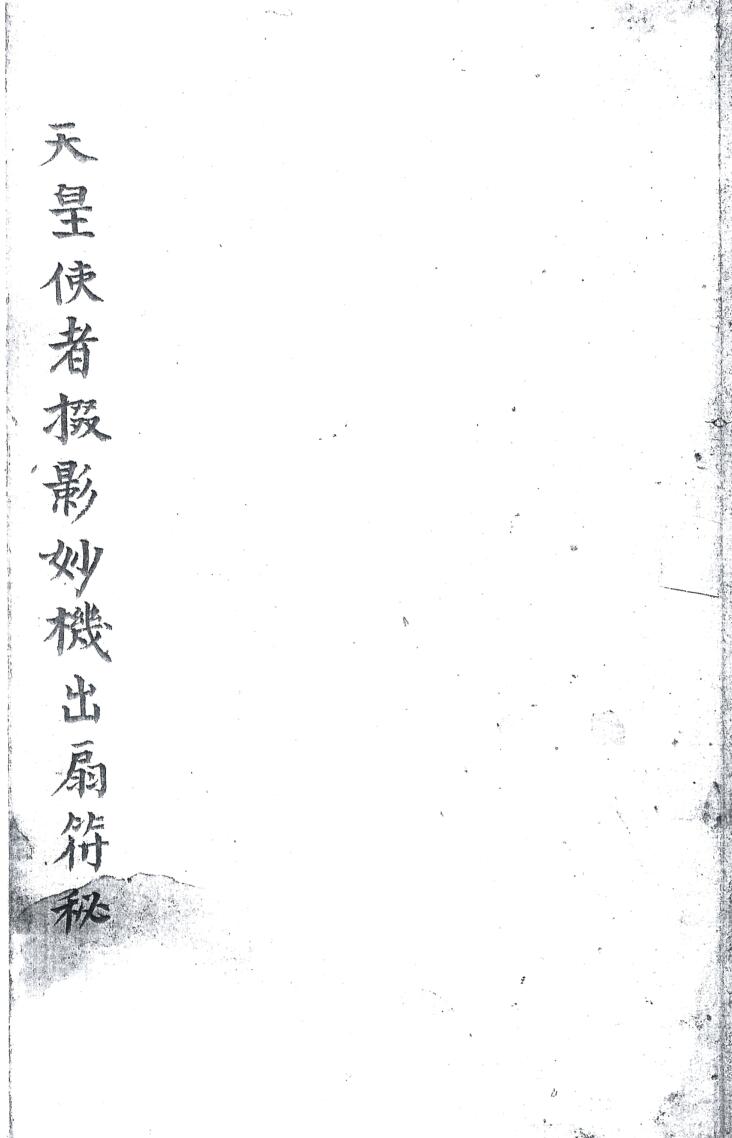 天皇使者掇影妙機出扇符秘